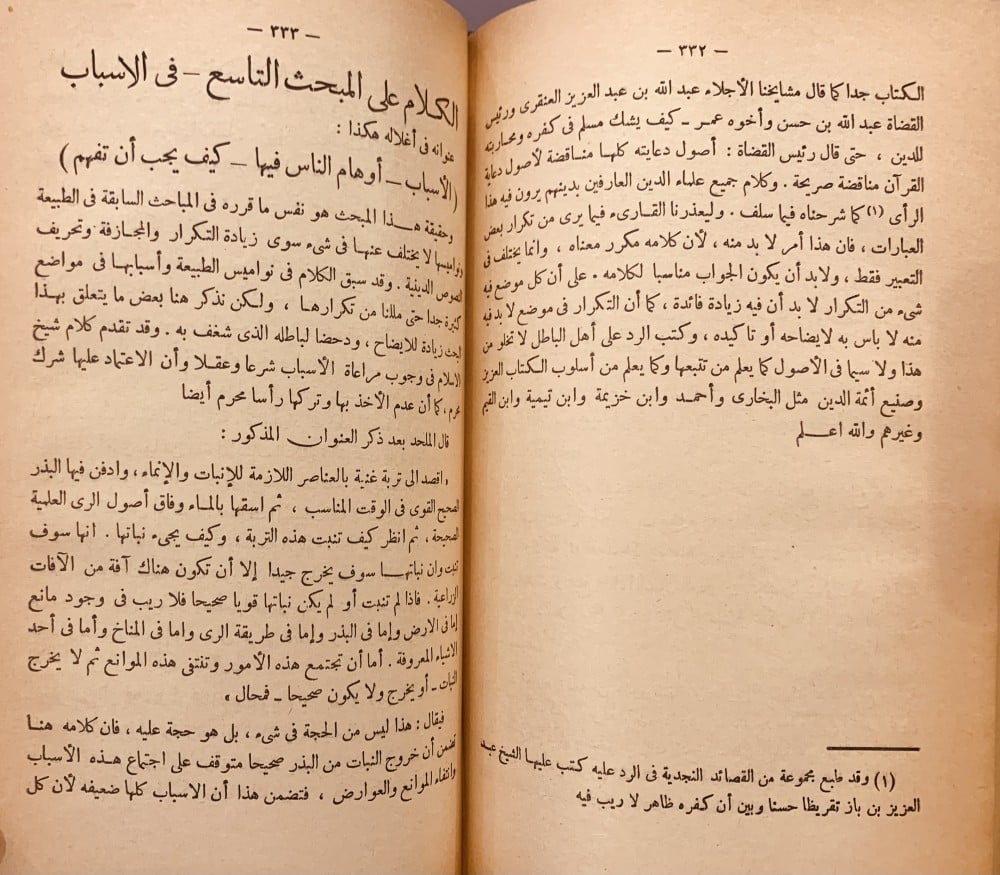 — ٣٣٢ —
الكتاب جدا كما قال مشايخنا الأجلاء عبد الله بن عبد العزيز العنقرى ورئيس
القضاة عبد الله بن حسن وأخوه عمر ـ كيف يشك مسلم فى كفره ومحاربته
للدين ، حتى قال رئيس القضاة : أصول دعايته كلها مناقضة لأصول دعاية
القرآن مناقضة صريحة . وكلام جميع علماء الدين العارفين بدينهم يرون فيه هذا
الرأى (١) كما شرحناه فيما سلف . وليعذرنا القارىء فيما يرى من تكرار بعض
العبارات ، فان هذا أمر لا بد منه ، لأن كلامه مكرر معناه ، وانما يختلف فى
التعبير فقط ، ولابد أن يكون الجواب مناسبا لكلامه . على أن كل موضع فيه
شىء من التكرار لا بد أن فيه زيادة فائدة ، كما أن التكرار فى موضع لا بد فيه
منه لا باس به لايضاحه أو تاكيده ، وكتب الرد على أهل الباطل لا تخلو من
هذا ولا سيما فى الأصول كما يعلم من تتبعها وكما يعلم من أسلوب الكتاب العزيز
وصنيع أئمة الدين مثل البخارى وأحمد وابن خزيمة وابن تيمية وابن القيم
وغيرهم والله اعلم
(١) وقد طبع مجموعة من القصائد النجدية فى الرد عليه كتب عليها الشيخ عبد
العزيز بن باز تقريظا حسنا وبين أن كفره ظاهر لا ريب فيه
— ٣٣٣ —
الكلام على المبحث التاسع – فى الاسباب
عنوانه فى أغلاله هكذا :
(الأسباب ـ أوهام الناس فيها ـ كيف يجب أن تفهم)
وحقيقة هذا المبحث هو نفس ما قرره فى المباحث السابقة فى الطبيعة
ونواميسها لا يختلف عنها فى شىء سوى زيادة التكرار والمجازفة وتحريف
النصوص الدينية . وقد سبق الكلام فى نواميس الطبيعة وأسبابها فى مواضع
كثيرة جدا حتى مللنا من تكرارها ، ولكن نذكر هنا بعض ما يتعلق بهذا
البحث زيادة للايضاح ، ودحضا لباطله الذى شغف به . وقد تقدم كلام شيخ
الاسلام فى وجوب مراعاة الأسباب شرعا وعقلا وأن الاعتماد عليها شرك
محرم ، كما أن عدم الأخذ بها وتركها رأسا محرم أيضا
قال الملحد بعد ذكر العنوان المذكور :
« اقصد الى تربة غنية بالعناصر اللازمة للإنبات والإنماء ، وادفن فيها البذر
الصحيح القوى فى الوقت المناسب ، ثم اسقها بالماء وفاق أصول الرى العلمية
الصحيحة ، ثم انظر كيف تنبت هذه التربة ، وكيف يجىء نباتها . انها سوف
تنبت وان نباتها سوف يخرج جيدا إلا أن تكون هناك آفة من الآفات
الزراعية . فاذا لم تنبت أو لم يكن نباتها قويا صحيحا فلا ريب فى وجود مانع
إما فى الارض وإما فى البذر وإما فى طريقة الرى واما فى المناخ وأما فى أحد
الاشياء المعروفة . أما أن تجتمع هذه الأمور وتنتفى هذه الموانع ثم لا يخرج
النبات ـ أو يخرج ولا يكون صحيحا ـ فمحال »
فيقال : هذا ليس من الحجة فى شىء ، بل هو حجة عليه ، فان كلامه هنا
تضمن أن خروج النبات من البذر صحيحا متوقف على اجتماع هذه الأسباب
وانتفاء الموانع والعوارض ، فتضمن هذا أن الاسباب كلها ضعيفه لأن كل